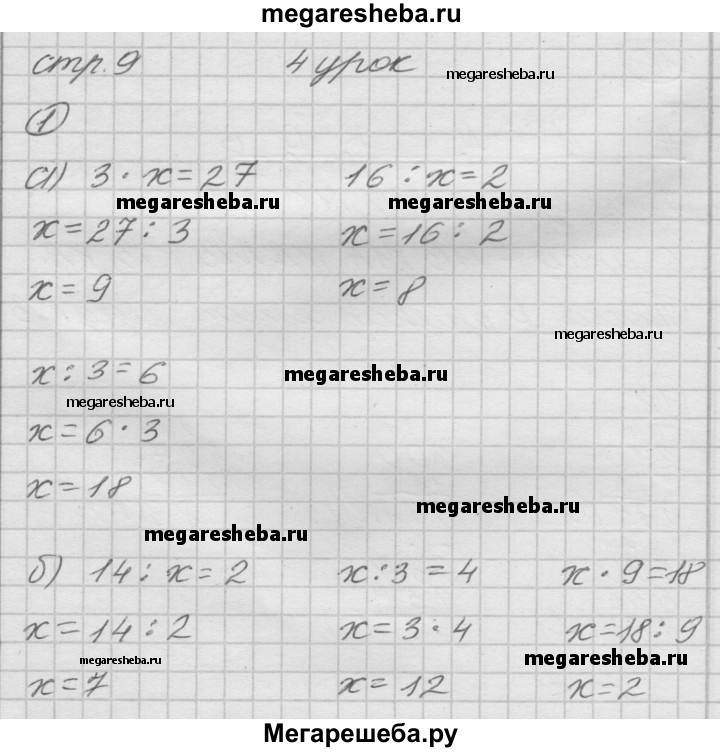 megaresheba.ru
стр. 9 4 урок megaresheba.ru
1
а) 3 · x = 27 16 : x = 2
megaresheba.ru megaresheba.ru
x = 27 : 3 x = 16 : 2
x = 9 x = 8
megaresheba.ru
x : 3 = 6 megaresheba.ru
megaresheba.ru
x = 6 · 3
x = 18
megaresheba.ru
megaresheba.ru
б) 14 : x = 2 x : 3 = 4 x · 9 = 18
x = 14 : 2 x = 3 · 4 x = 18 : 9
megaresheba.ru megaresheba.ru
x = 7 x = 12 x = 2
Мегарешеба.ру